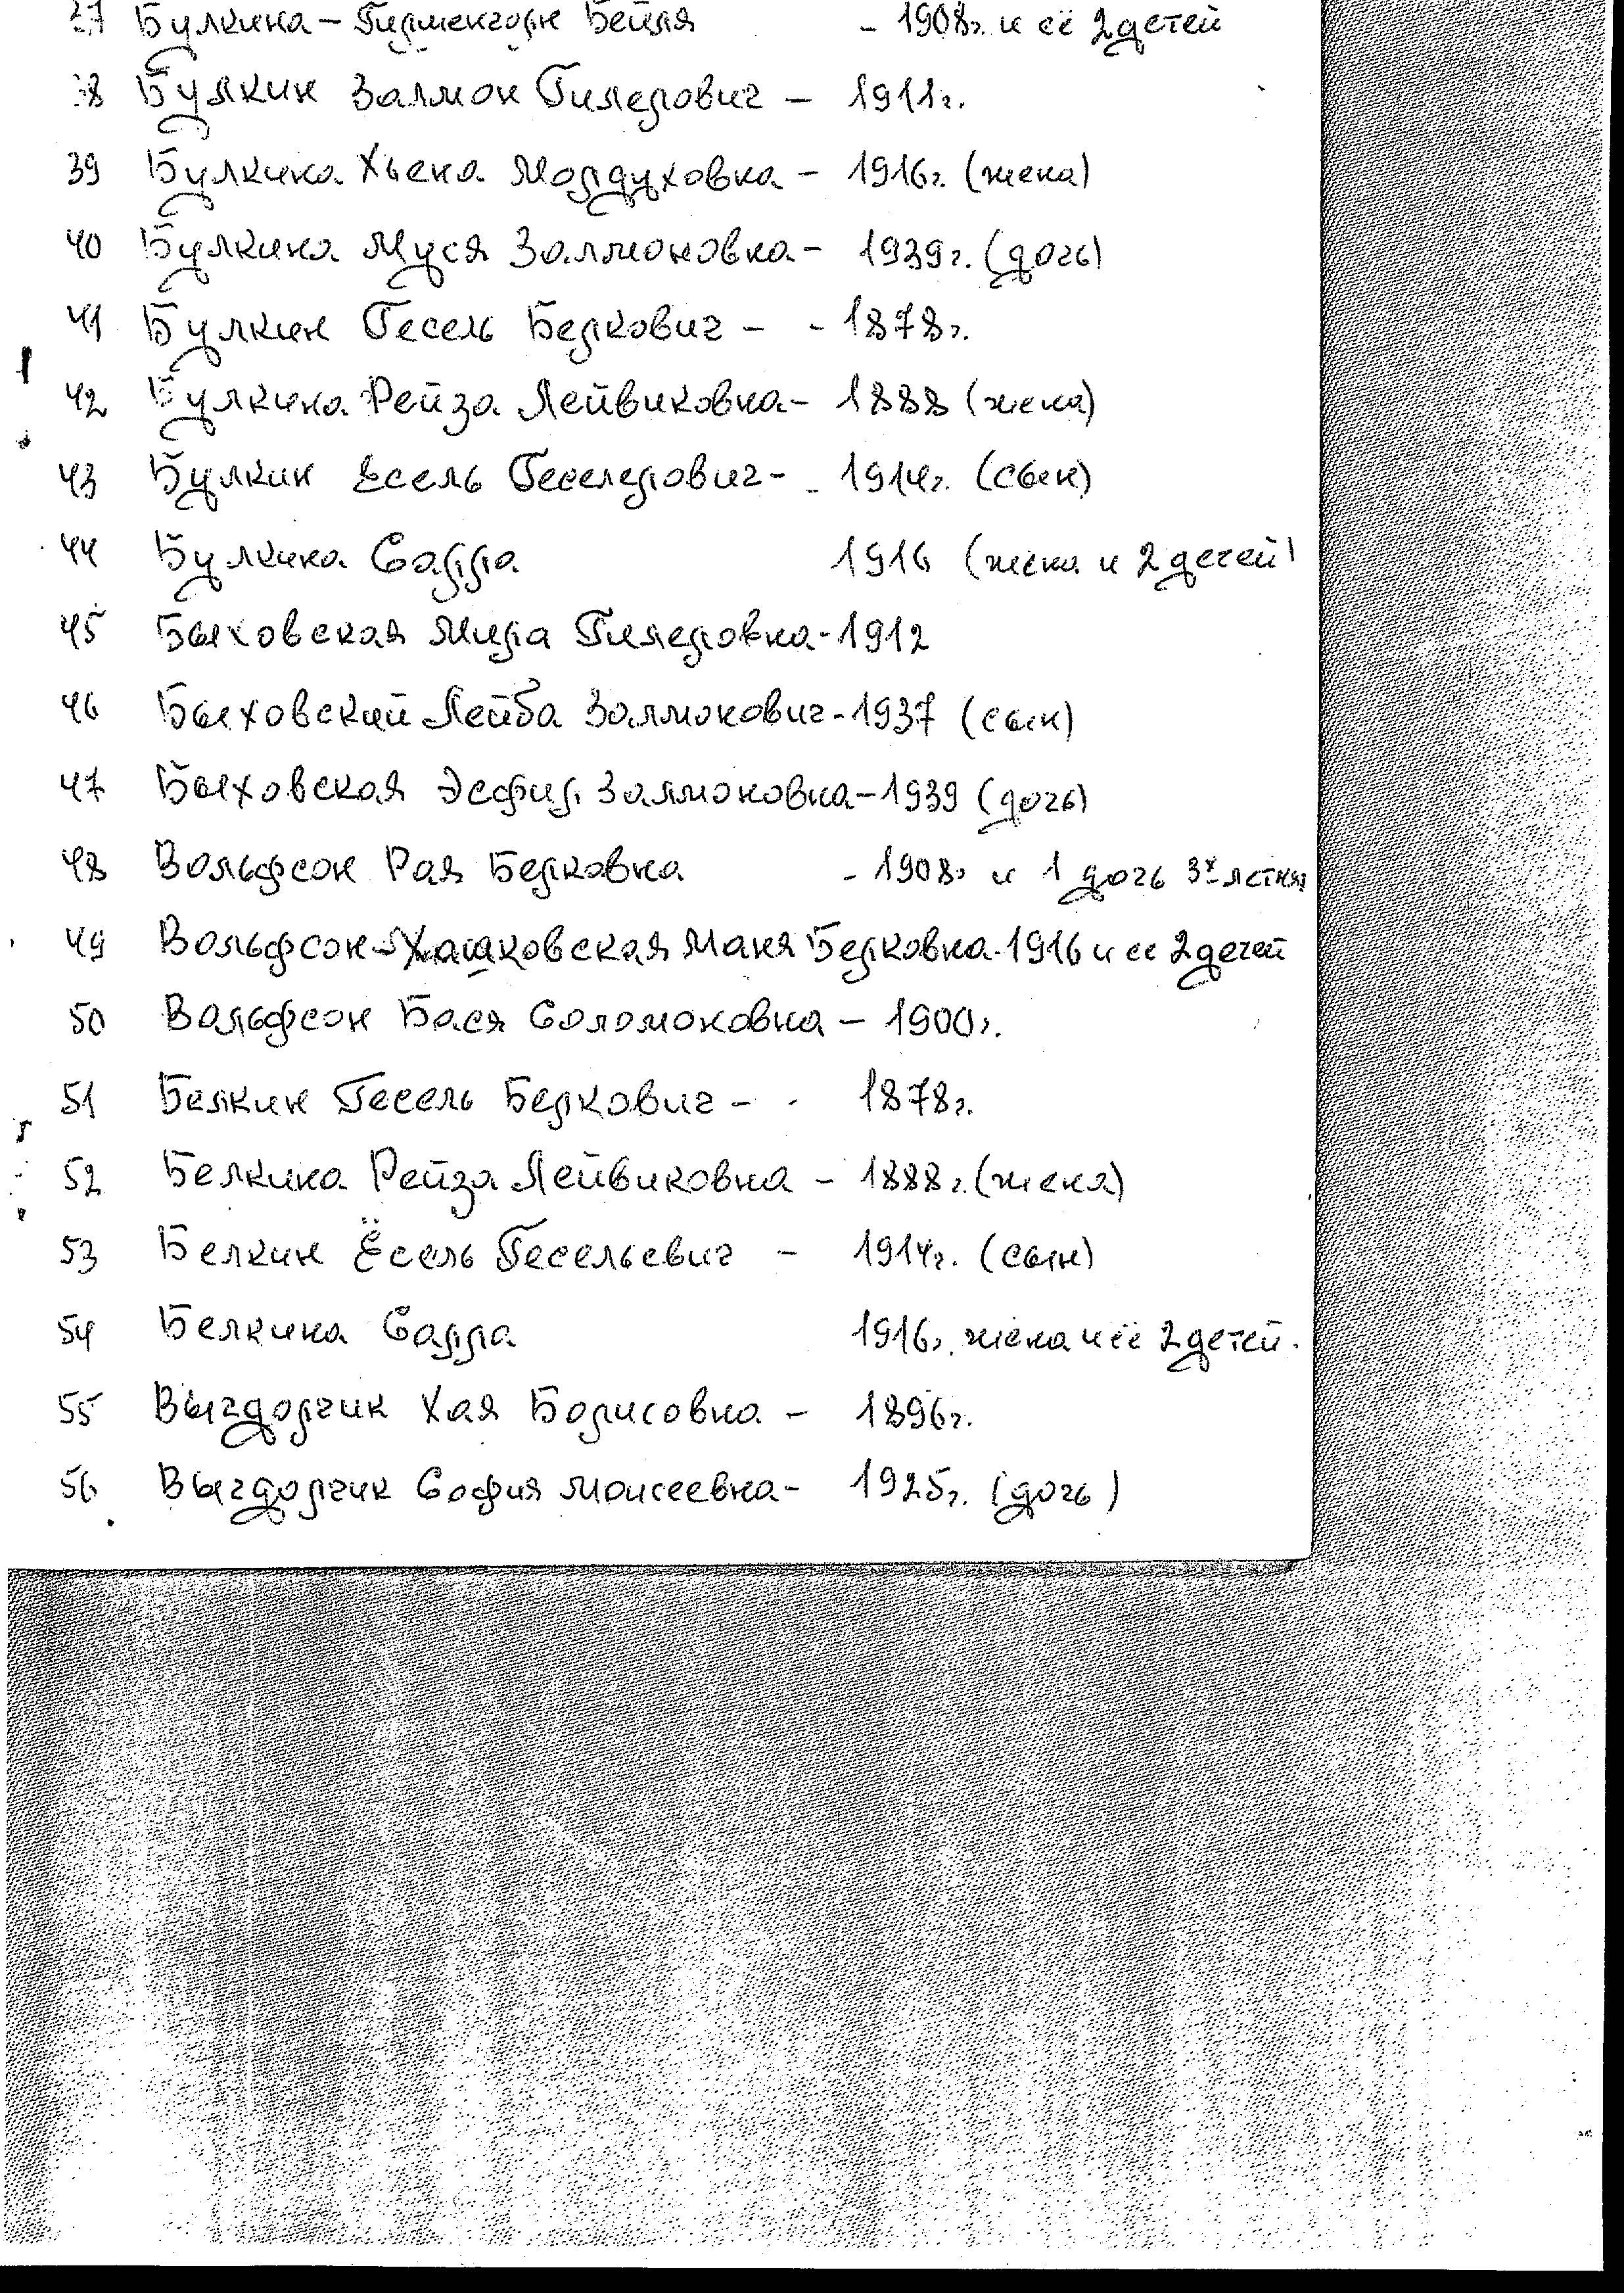 37 Булкина - Гирменгорн Бейля - 1908г. и её 2 детей
38 Булкин Залмон Гилерович - 1911г.
39 Булкина Хьена Мордуховна - 1916г. (жена)
40 Булкина Муся Залмоновна - 1939г. (дочь)
41 Булкин Гесель Беркович - - 1878г.
42 Булкина Рейза Лейвиковна - 1888 (жена)
43 Булкин Есель Геселерович - - 1914г. (сын)
44 Булкина Сарра 1916 (жена и 2 детей)
45 Быховская Мира Гилеровна - 1912
46 Быховский Лейба Залмонович - 1937 (сын)
47 Быховская Эсфир Залмоновна - 1939 (дочь)
48 Вольфсон Рая Берковна - 1908г и 1 дочь 3х летняя
49 Вольфсон - Хашковская Маня Берковна - 1916 и ее 2 детей
50 Вольфсон Бася Соломоновна - 1900г.
51 Белкин Гесель Беркович - - 1878г.
52 Белкина Рейза Лейвиковна - 1888г. (жена)
53 Белкин Ёсель Гесельевич - 1914г. (сын)
54 Белкина Сарра 1916г. жена и её 2 детей.
55 Выгдорчик Хая Борисовна - 1896г.
56 Выгдорчик София Моисеевна - 1925г. (дочь)